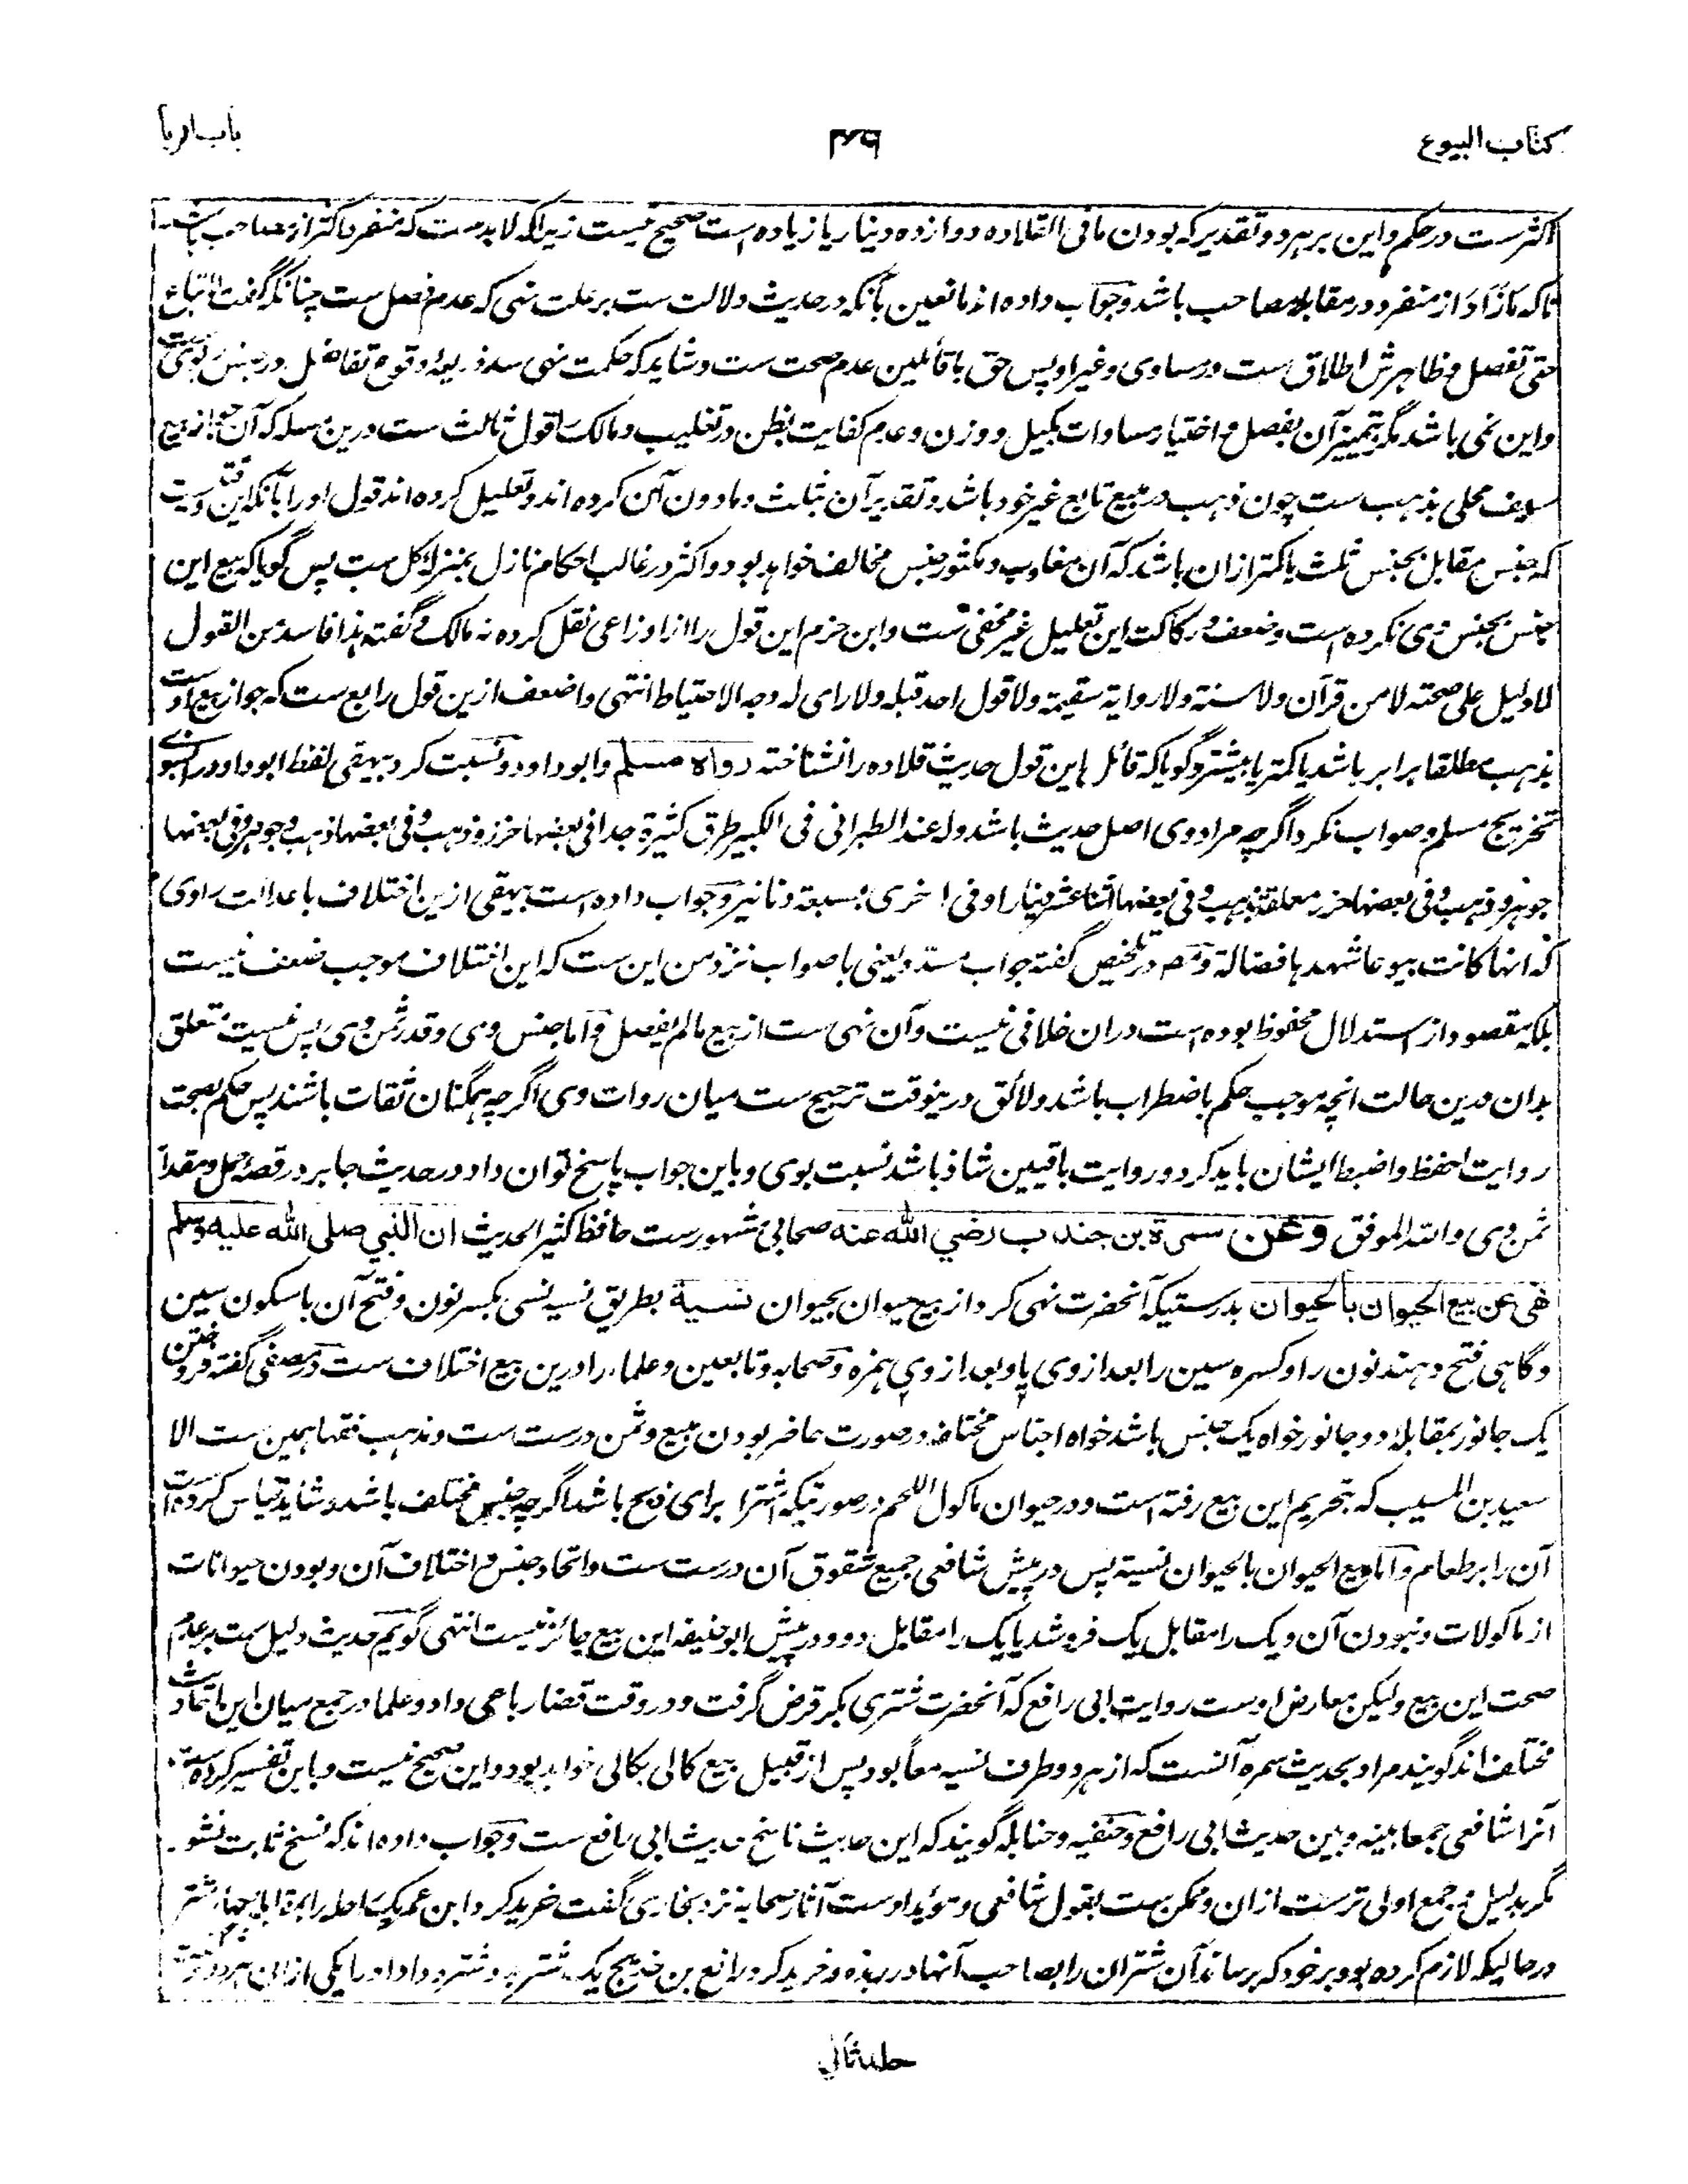 کتاب البیوع
۴۶۹
باب الربا
اکثرست در حکم و این بر هر دو تقدیر که بودن ما فی القلاده دوازده دینار یا زیاده است صحیح نیست زیرا که لابدست که منفرد اکثر از مصاحب باشد
تا که ما زاد از منفرد در مقابله مصاحب باشد و جواب داده اند مانعین بآنکه در حدیث دلالت ست بر علت نهی که عدم فصل ست چنانکه گفت لا تباع
حتی تفصل و ظاهرش اطلاق ست در مساوی و غیر او پس حق با قائلین عدم صحت ست و شاید که حکمت نهی سد ذریعه وقوع تفاضل در جنس ربوی ست
و این نمی باشد مگر بتمییز آن بفصل و اختیار مساوات بکیل و وزن و عدم کفایت بظن در تغلیب و مالک را قول ثالث ست درین مسله که آن جواز بیع
سیف محلی بذهب ست چون ذهب در مبیع تابع غیر خود باشد و تقدیر آن بثلث و مادون آن کرده اند و تعلیل کرده اند قول او را بآنکه این وقتی ست
که جنس مقابل بجنس ثلث یا کمتر ازان باشد که آن مغلوب و مکثور جنس مخالف خواهد بود و اکثر در غالب احکام نازل بمنزله کل ست پس گویا که بیع این
جنس بجنس وی نکرده است و ضعف و رکاکت این تعلیل غیر مخفی ست و ابن حزم این قول را از اوزاعی نقل کرده نه مالک و گفته هذا فاسد من القول
لا دلیل علی صحته لا من قرآن ولا سنة ولا روایة سقیمة ولا قول احد قبله ولا رای له وجه الاحتیاط انتهی و اضعف ازین قول رابع ست که جواز بیع اوست
بذهب مطلقا برابر باشد یا کمتر یا بیشتر و گویا که قائل باین قول حدیث قلاده را نشناخته رواه مسلم و ابو داود و نسبت کرد بیهقی لفظ ابو داود را بسوے
تخریج مسلم و صواب نکرد اگرچه مراد وی اصل حدیث باشد وله عند الطبرانی فی الکبیر طرق کثیرة جدا فی بعضها خرز و ذهب و فی بعضها ذهب و جوهر و فی بعضها
جوهر و ذهب و فی بعضها خرز معلقة بذهب و فی بعضها اثنا عشر دینارا و فی اخری بسبعة دنانیر و جواب داده است بیهقی ازین اختلاف با عدالت راوی
که انها کانت بیوعا شهدها فضالة و در تلخیص گفته جواب مسدد یعنی با صواب نزد من این ست که این اختلاف موجب ضعف نیست
بلکه مقصود از استدلال محفوظ بوده است دران خلافی نیست و آن نهی ست از بیع مالم یفصل و اما جنس وی و قدر ثمن وی پس نیست متعلق
بدان درین حالت انچه موجب حکم باضطراب باشد و لائق درینوقت ترجیح ست میان روات وی اگرچه همگنان ثقات باشند پس حکم بصحت
روایت احفظ و اضبط ایشان باید کرد و روایت باقیین شاذ باشد نسبت بوی و باین جواب پاسخ توان داد در حدیث جابر در قصه جمل و مقدار
ثمن وی و الله الموفق وعن سمرة بن جندب رضي الله عنه صحابی مشهورست حافظ کثیر الحدیث ان النبي صلی الله علیه وسلم
نهى عن بیع الحیوان بالحیوان بدرستیکه آنحضرت نهی کرد از بیع حیوان بحیوان نسیة بطریق نسیه نسی بکسر نون و فتح آن با سکون سین
و گاهی فتح دهند نون را و کسره سین را بعد از وی یا و بعد از وی همزه و صحابه و تابعین و علماء را درین بیع اختلاف ست در مصفی گفته فروختن
یک جانور بمقابله دو جانور خواه یک جنس باشد خواه اجناس مختلفه در صورت حاضر بودن مبیع و ثمن درست ست و مذهب فقها همین ست الا
سعید بن المسیب که بتحریم این بیع رفته است در حیوان ماکول اللحم در صورتیکه اشترا برای ذبح باشد اگرچه جنس مختلف باشد و شاید قیاس کرده است
آن را بر طعام و اما بیع الحیوان بالحیوان نسیة پس در پیش شافعی جمیع شقوق آن درست ست و اتحاد جنس و اختلاف آن و بودن حیوانات
از ماکولات و نبودن آن و یک را مقابل یک فروشد یا یک را مقابل دو و در پیش ابو حنیفه این بیع جائز نیست انتهی گویم حدیث دلیل ست بر عدم
صحت این بیع ولیکن معارض اوست روایت ابی رافع که آنحضرت شتری بکر قرض گرفت و در وقت قضا رباعی داد و علما در جمع میان این احادیث
مختلف اند گویند مراد بحدیث سمره آنست که از هر دو طرف نسیه معا بود پس از قبیل بیع کالی بکالی خواهد بود و این صحیح نیست و باین تفسیر کرده ست
آنرا شافعی جمعا بینه و بین حدیث ابی رافع و حنفیه و حنابله گویند که این حدیث ناسخ حدیث ابی رافع ست و جواب داده اند که نسخ ثابت نشود
مگر بدلیل و جمع اولی ترست ازان و ممکن ست بقول شافعی و مؤید اوست آثار صحابه نزد بخاری گفت خرید کرد ابن عمر یک راحله را بچهار شتر
در حالیکه لازم کرده بود بر خود که برساند آن شتران را بصاحب آنها در ربذه و خرید کرد رافع بن خدیج یک شتر بدو شتر و داد او را یکی ازان هر دو
جلد ثانی